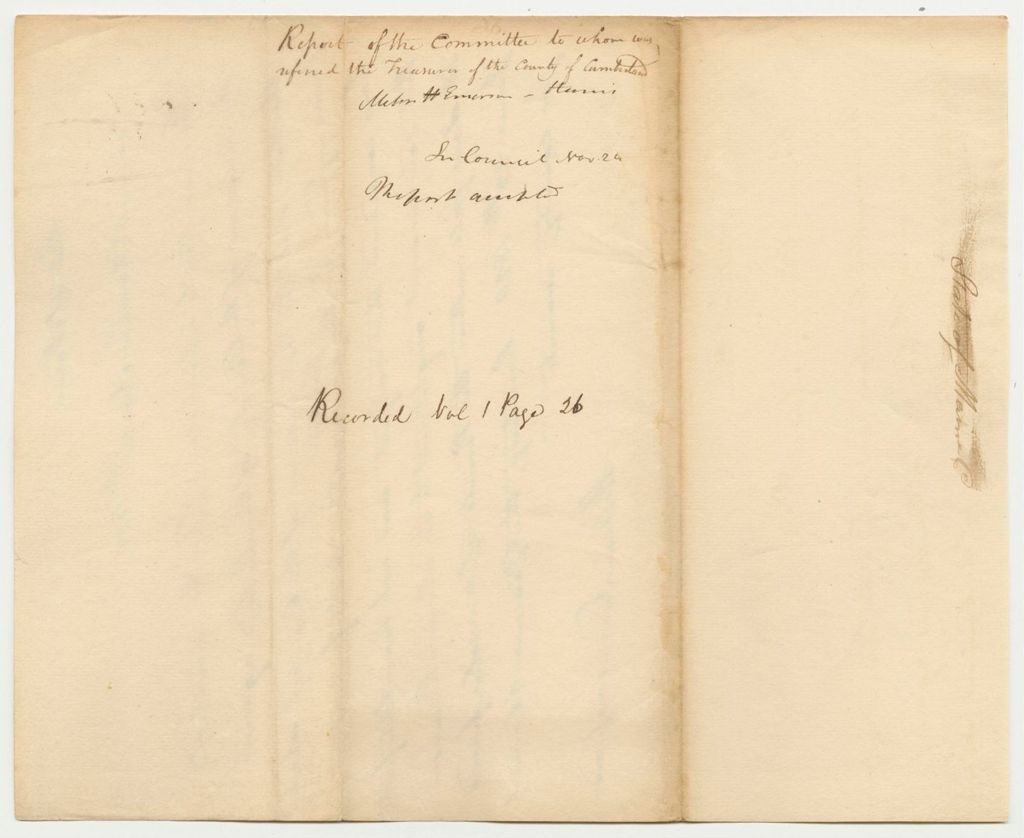 Report of the Committee to whom was
referred the Treasurer of the County of Cumberland
Emerson - Harris
In Council Nov. 24
Report accepted
Recorded Vol 1 Page 26
State of Maine